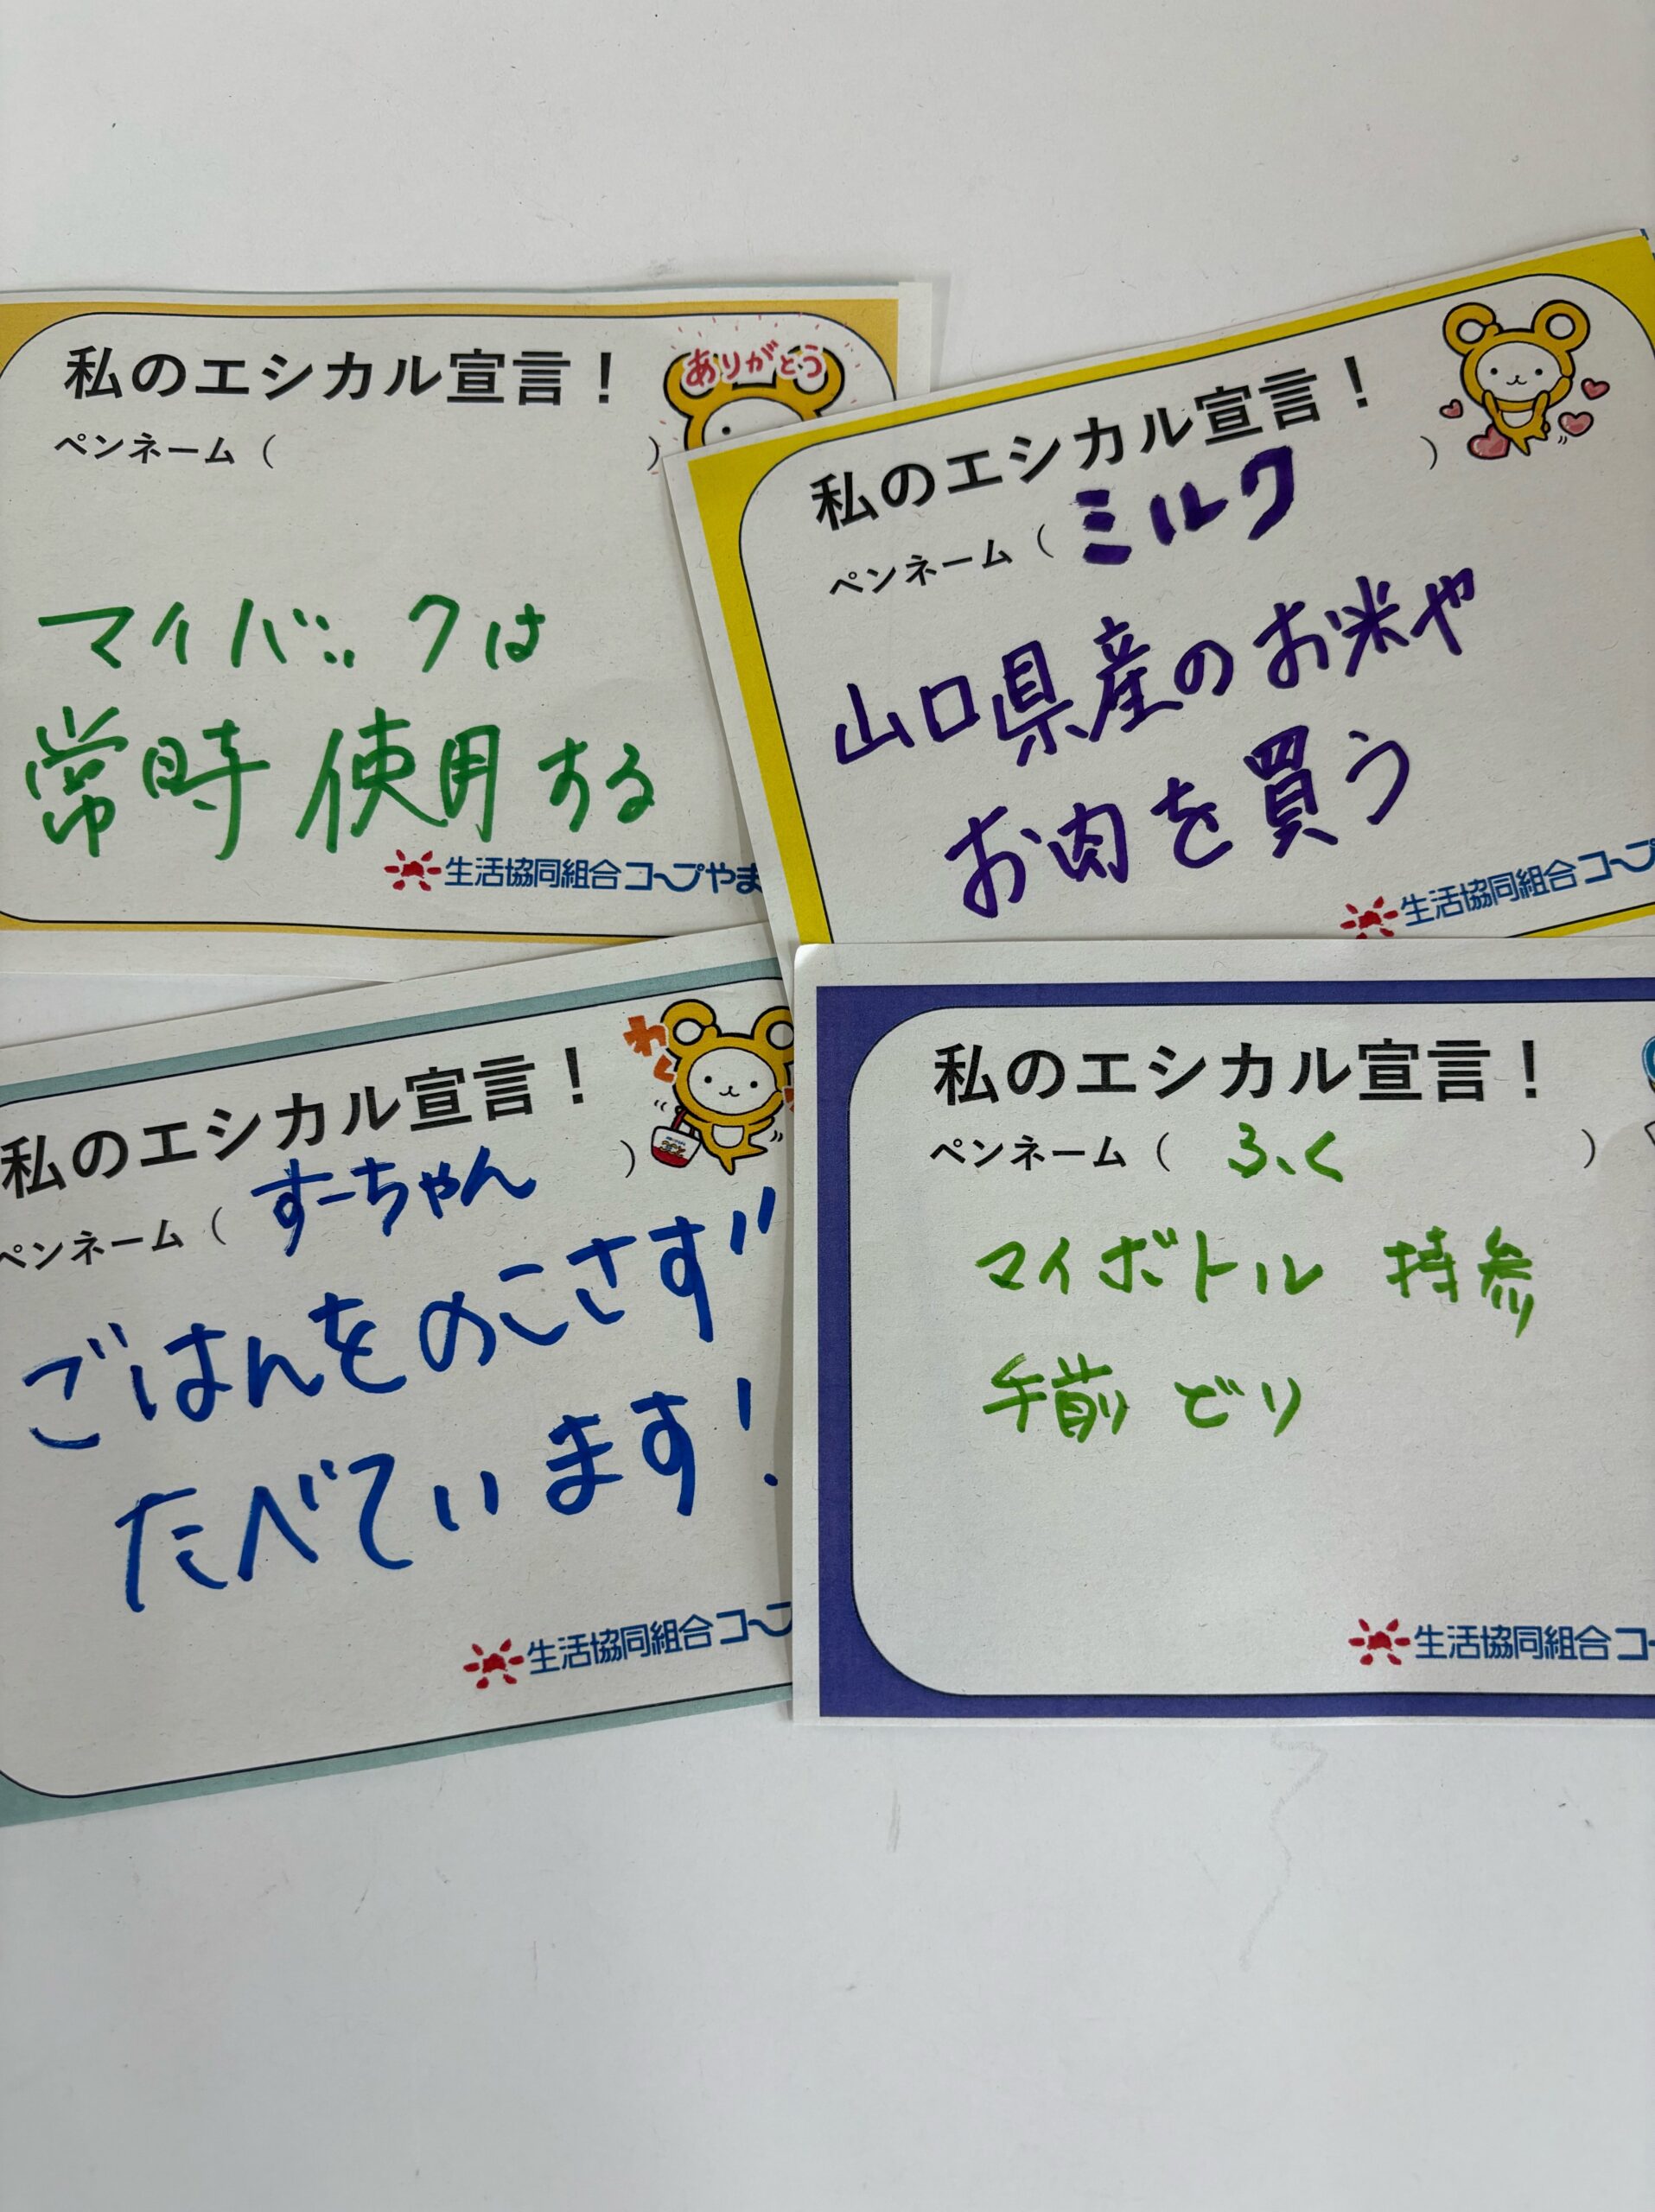 私のエシカル宣言！
ありがとう
ペンネーム（　　　）
マイバックは
常時使用する
生活協同組合コープやま
私のエシカル宣言！
ペンネーム（ミルク）
山口県産のお米や
お肉を買う
生活協同組合コープ
私のエシカル宣言！
わく
ペンネーム（すーちゃん）
ごはんをのこさず
たべています！
生活協同組合コープ
私のエシカル宣言！
ペンネーム（ふく）
マイボトル 持参
手前どり
生活協同組合コー